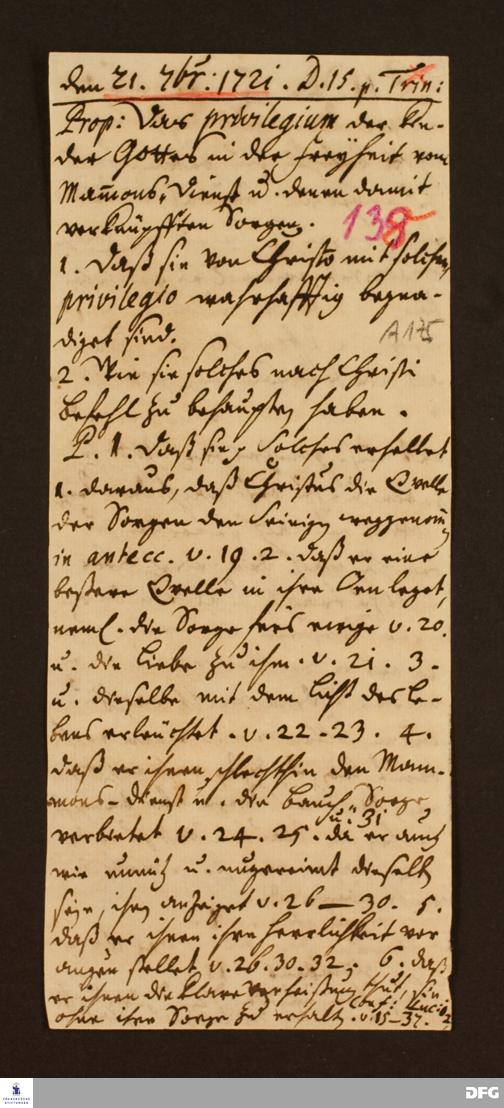 den 21. 7br: 1721. D. 15. p. Trin:
Prop: Das privilegium der Kin-
der Gottes in der Freyheit vom
Mam̅ons-Dienst u. denen damit
verknüpfften Sorgen.
138
1. Daß sie von Christo mit solchem
privilegio wahrhafftig begna-
diget sind.
A 175
2. Wie sie solches nach Christi
Befehl zu behaupten haben.
P. 1. Daß sie solches erhellet
1. daraus, daß Christus die Qvelle
der Sorgen den Seinigen weggenom̅en
in antecc. v. 19. 2. daß er eine
beßere Qvelle in ihre leget,
neml. die Sorge fürs ewige v. 20.
u. die Liebe zu ihm. v. 21. 3.
u. dieselbe mit dem Licht des Le-
bens erleuchtet. v. 22-23. 4.
daß er ihnen schlechthin den Mam-
mons-dienst u. die Bauch-Sorge
verbietet v. 24. 25. u. 31 da er auch
wie unnütz u. ungereimt dieselbe
sey, ihnen anzeiget v. 26-30. 5.
daß er ihnen ihre Herrlichkeit vor
augen stellet v. 26. 30. 32. 6. daß
er ihnen die klare Verheißung thut, sie
ohne ihre Sorge zu erhalten. v.
conf: Luc. 12
v. 15-37.
FRANCKESCHE
STIFTUNGEN
DFG